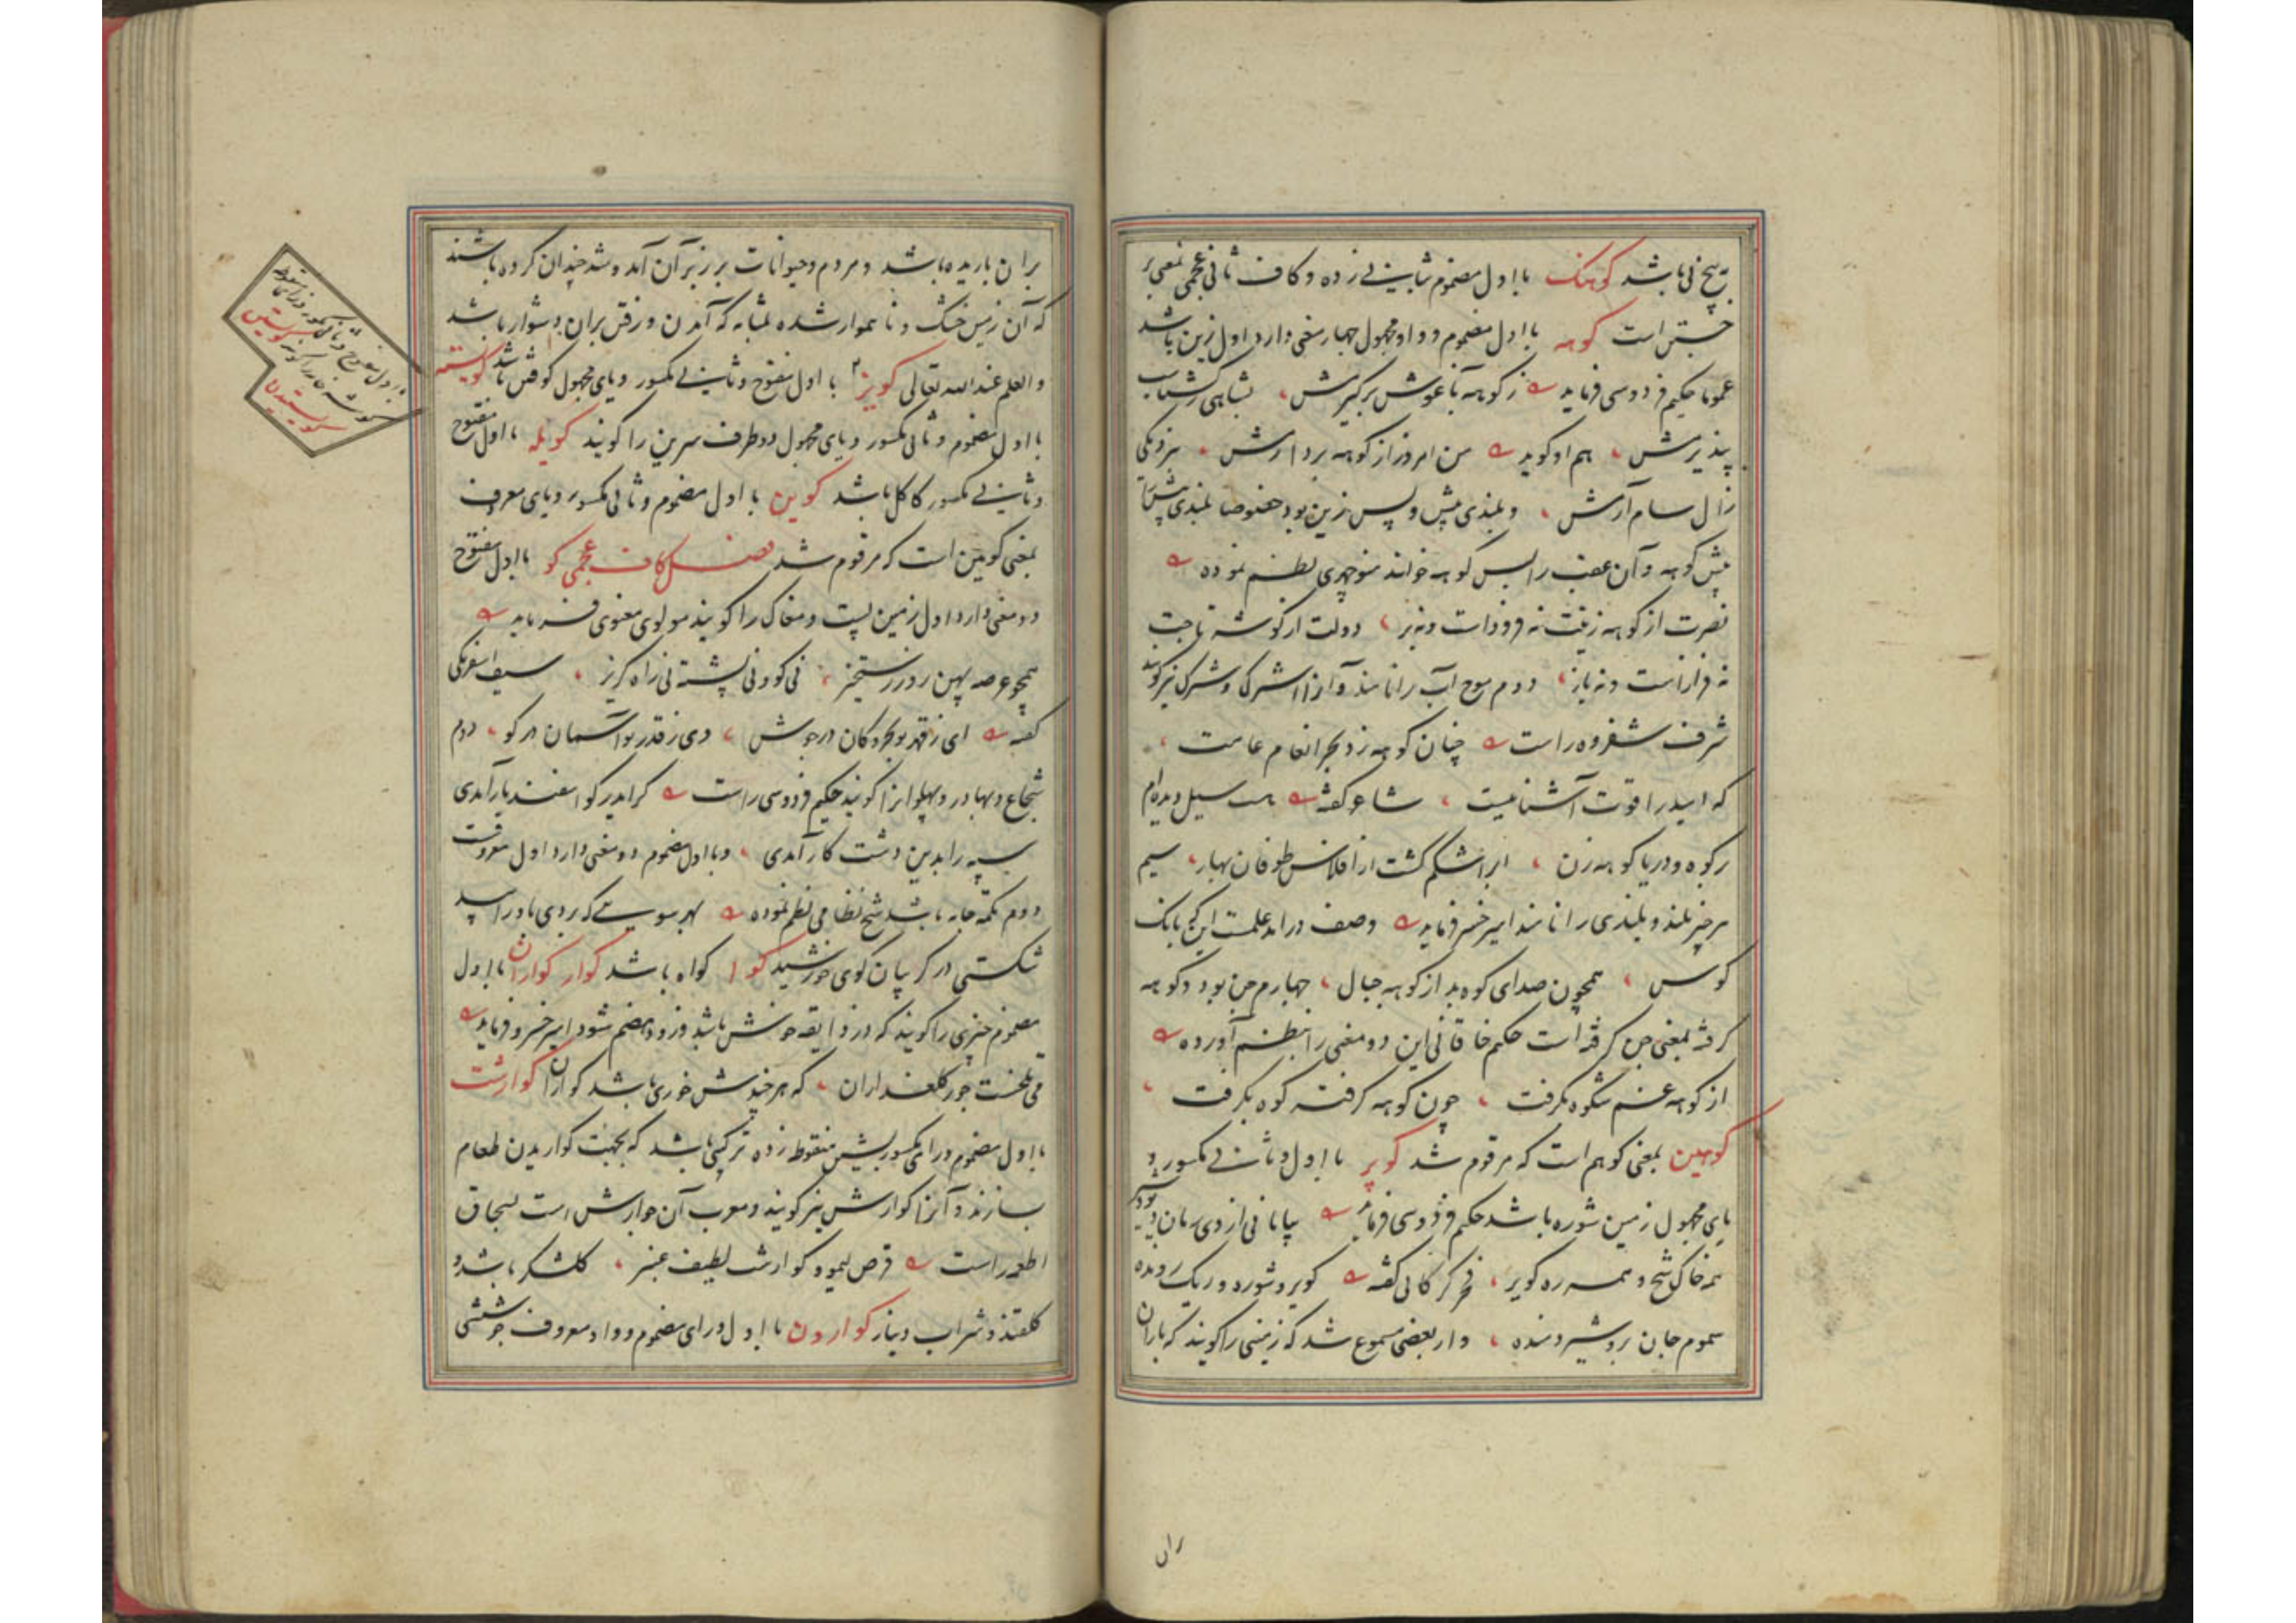 بیخ نی باشد کوهنک با اول مضموم بثانی زده و کاف ثانی عجمی بمعنی بر
جستن است کوهه با اول مضموم و واو مجهول چهار معنی دارد اول زین باشد
عموما حکیم فردوسی فرماید ز کوهه بآغوش بر گیرش بشاهی ز گشتاسب
پذیرش هم او گوید من امروز از کوهه بردارمش بنزدیکی
زال سام آرمش و بلندی پیش و پس زین بود خصوصا بلندی پیش را
پیش کوهه و آن عقب را پس کوهه خوانند منوچهری نظم نموده
نصرت از کوهه زینت نه فرودست و نه بر دولت از گوشه تاجت
نه فرازست و نه باز دوم موج آب را نامند و آنرا اشترک و شترک نیز گویند
شرف شفروه راست چنان کوهه زد بحر انعام عامت
که امید را قوت آشنا نیست شاعر گفته هست سیل دیده‌ام
رکوه و دریا کوهه زن ابر اشکم گشت از افلاس طوفان بهار سیم
هر چیز بلند و بلندی را نامند امیر خسرو فرماید وصف درامد علمت این که بانک
کوس همچون صدای کوه بد از کوهه جبال چهارم جن بود و کوهه
گرفته بمعنی جن گرفته است حکیم خاقانی این دو معنی را بنظم آورده
از کوهه غم شکوه بگرفت چون کوهه گرفته کوه بگرفت
کوهین بمعنی کوهم است که مرقوم شد کویر با اول و ثانی مکسور و
یای مجهول زمین شوره باشد حکیم فردوسی فرماید بیابانی از وی رمان دیو و شیر
همه خاک شخ و همه ره کویر فخر گرگانی گفته کویر و شوره و ریک رونده
سموم جان بر و شیر دمنده و از بعضی مسموع شد که زمینی را گویند که باران
ران
بران باریده باشد و مردم و حیوانات بر زبر آن آمد و شد چندان کرده باشند
که آن زمین خشک و ناهموار شده بمثابه که آمدن و رفتن بران دشوار باشد
والعلم عند الله تعالی کویز با اول مفتوح و ثانی مکسور و یای مجهول گوشه باشد کویسته
با اول مضموم و ثانی مکسور و یای مجهول دو طرف سرین را گویند کویله با اول مفتوح
و ثانی مکسور کاکل باشد کوین با اول مضموم و ثانی مکسور و یای معروف
بمعنی کوبین است که مرقوم شد فصل کاف عجمی کو با اول مفتوح
دو معنی دارد اول زمین پست و مغاک را گویند مولوی معنوی فرماید
همچو عرصه پهن روز رستخیز نی گو و نی پشته نی راه گریز سیف اسفرنگی
گفته ای ز قهر تو بحر و کان در جوش وی ز قدر تو آسمان در گو دوم
شجاع و بهادر و پهلوانرا گویند حکیم فردوسی راست گر ایدر گو اسفندیار آمدی
سپه را بدین دشت کار آمدی و با اول مضموم دو معنی دارد اول معروفست
دوم تکمه جامه باشد شیخ نظامی نظم نموده بهر سویی که بردی باد را سپید
شکستی در گریبان گوی خورشید کوا گواه باشد کوار کواران با اول
مضموم چیزی را گویند که در ذایقه خوش باشد و زود هضم شود امیر خسرو فرماید
می تلخست جور گلعذاران که هر چندش خوری باشد گواران کوارشت
با اول مضموم و رای مکسور بشین منقوط زده ترکیبی باشد که بجهت گواریدن طعام
سازند و آنرا گوارش نیز گویند و معرب آن جوارش است بسحاق
اطعمه راست قرص لیمو و گوارشت لطیف عنبر گلشکر باشد و
گلقند و شراب دینار کوارون با اول و رای مضموم و واو معروف جوششی
با اول مفتوح و ثانی مکسور و زای منقوطه
گوشه خانه را گویند کویستن
کویستیدن